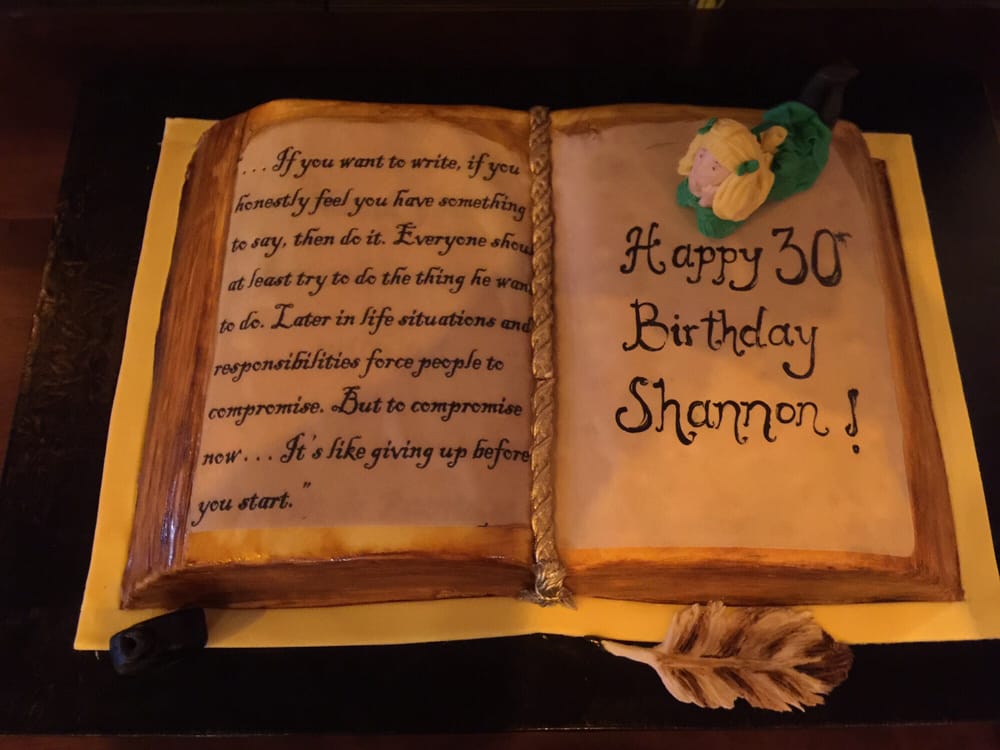 "...If you want to write, if you
honestly feel you have something
to say, then do it. Everyone shou
at least try to do the thing he wan
to do. Later in life situations and
responsibilities force people to
compromise. But to compromise
now... It's like giving up before
you start."
Happy 30th
Birthday
Shannon!